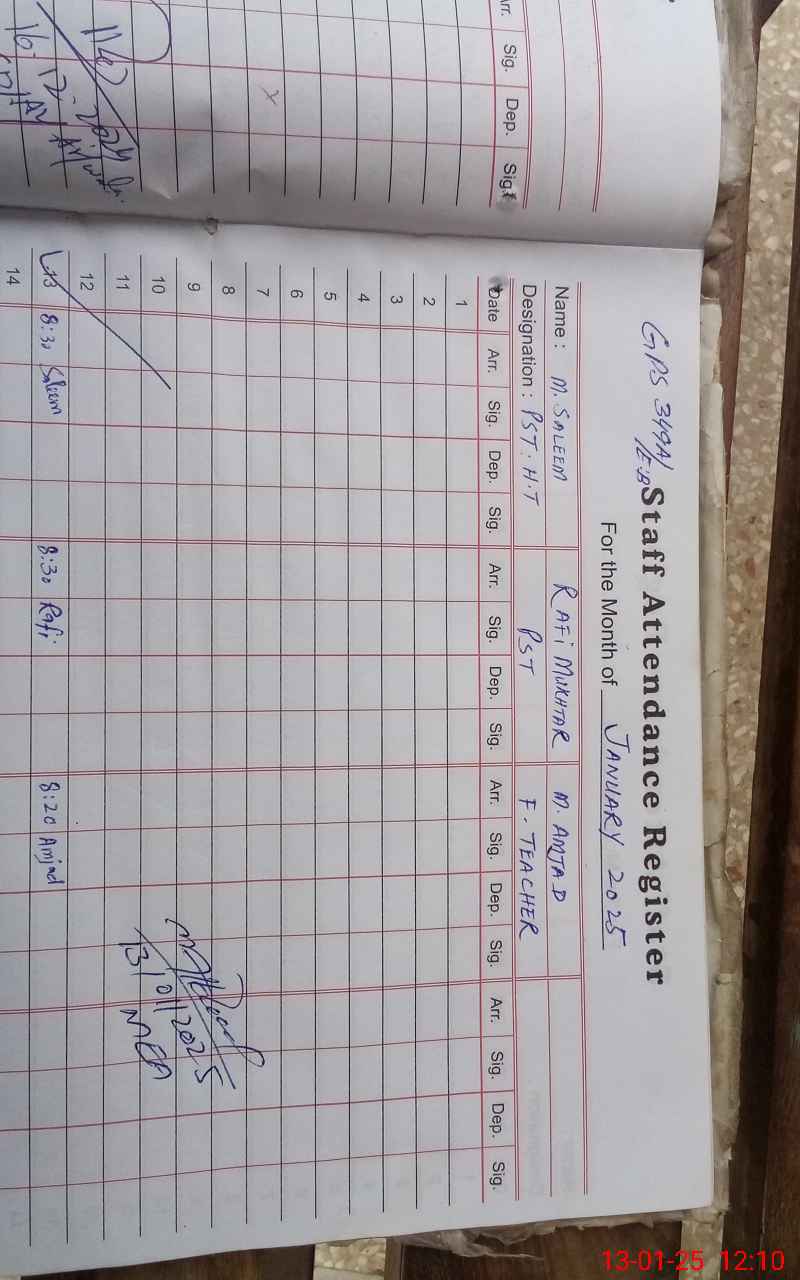 GPS 349A/E.B
Staff Attendance Register
For the Month of JANUARY 2025
Name : M. SALEEM RAFI MUKHTAR M. AMJAD
Designation : PST. H.T PST F. TEACHER
Date Arr. Sig. Dep. Sig. Arr. Sig. Dep. Sig. Arr. Sig. Dep. Sig. Arr. Sig. Dep. Sig.
1
2
3
4
5
6
7
8
9
10
11
12
13 8:30 Saleem 8:30 Rafi 8:20 Amjad
14
13/01/2025
MEA
Arr. Sig. Dep. Sig.
2024
13-01-25 12:10